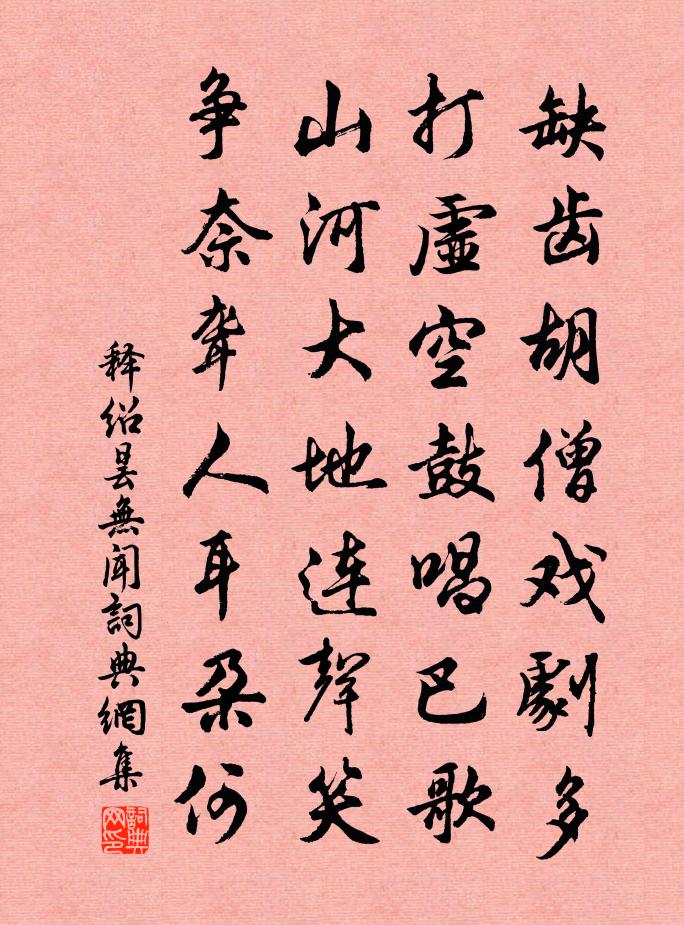 缺齿胡僧戏劇多
打虛空鼓唱巴歌
山河大地连聲笑
争奈聋人耳朵何
释绍昙無闻詞典網集
詞典网印